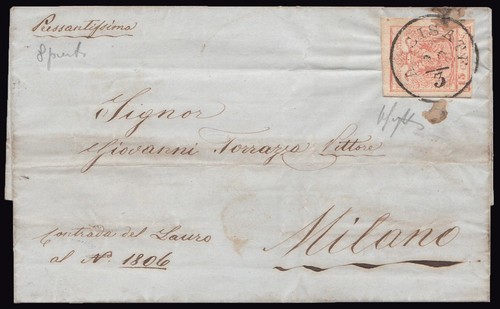 Pressantissima
Signor
Giovanni Torrazza Pittore
Contrada del Lauro
al N. 1806
Milano